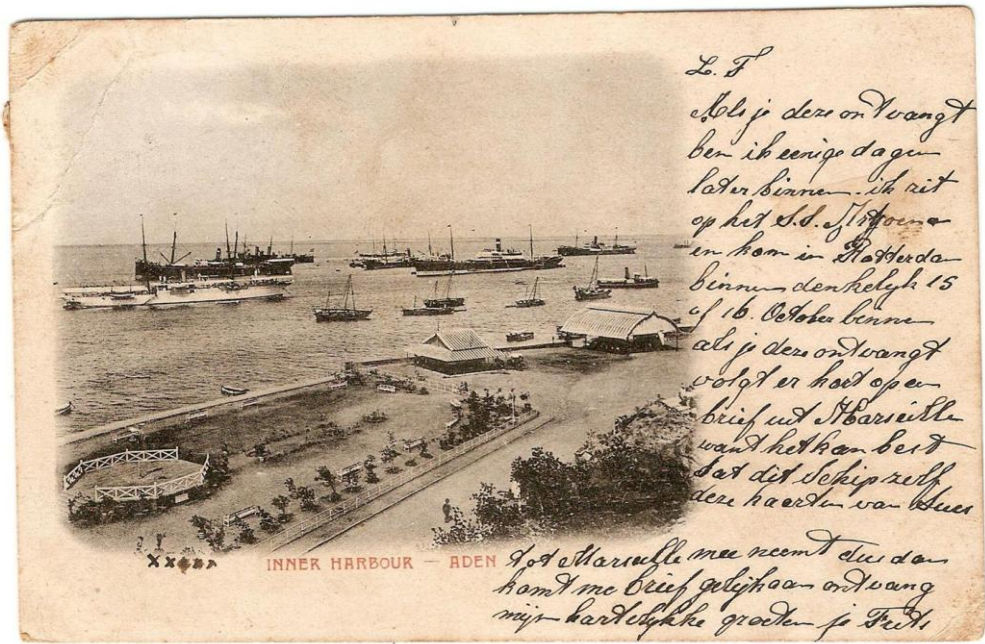 L. F
Als je deze ontvangt
ben ik eenige dagen
later binnen. ik zit
op het S.S.
en kom in Rotterdam
binnen denkelyk 15
of 16. October binnen
als je deze ontvangt
volgt er kort op een
brief uit Marseille
want het kan best
dat dit Schip zelf
deze kaarten van Sues
tot Marseille mee neemt dus dan
komt me brief gelijk aan ontvang
mijn hartelykke groeten je Frits
INNER HARBOUR — ADEN